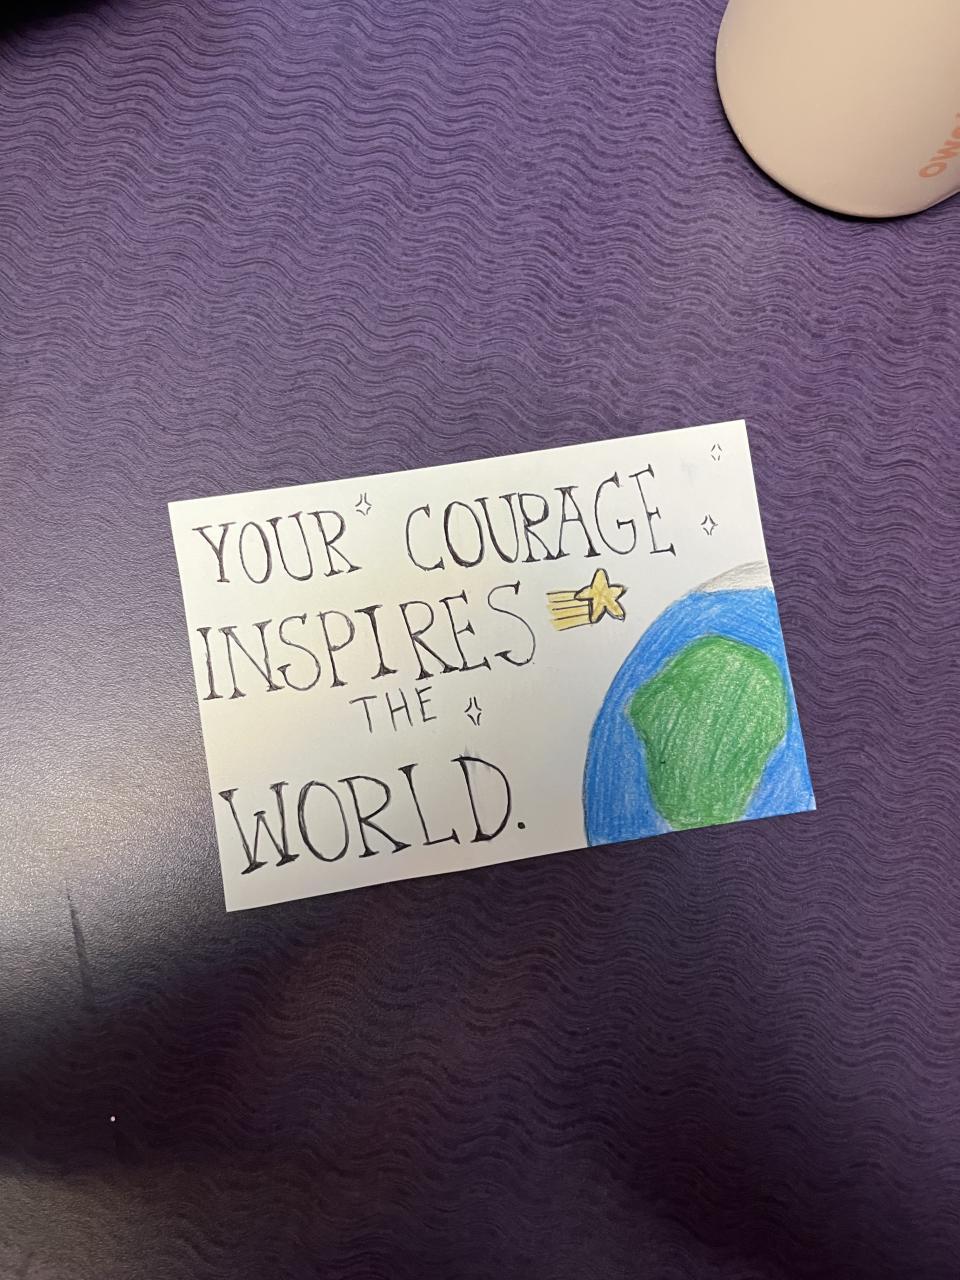 YOUR COURAGE
INSPIRES
THE
WORLD.